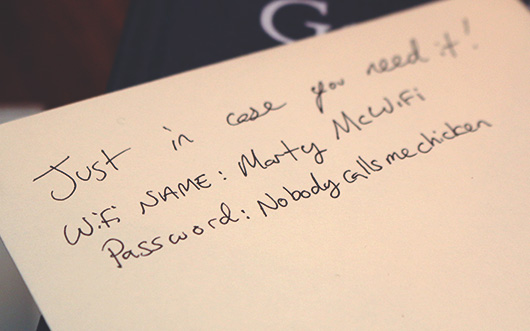 G
Just in case you need it!
Wifi NAME: Marty McWiFi
Password: Nobodycallsmechicken